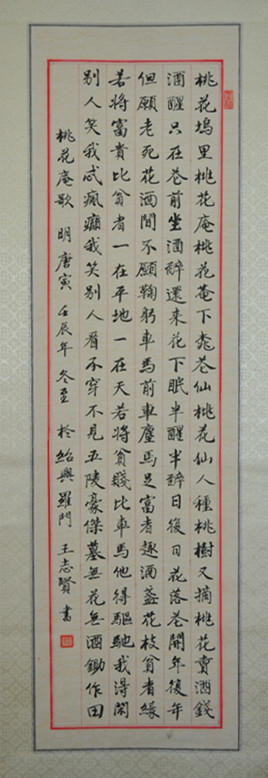 桃花塢里桃花庵桃花菴下桃花仙桃花仙人種桃樹又摘桃花賣酒錢
酒醒只在花前坐酒醉還來花下眠半醒半醉日後日花落花開年後年
但願老死花酒間不願鞠躬車馬前車塵馬足富者趣酒盞花枝貧者緣
若將富貴比貧者一在平地一在天若將貧賤比車馬他得驅馳我得閑
別人笑我忒瘋癲我笑別人看不穿不見五陵豪傑墓無花無酒鋤作田
桃花庵歌 明 唐寅 壬辰年 冬至 於 紹興羅門 王志賢 書